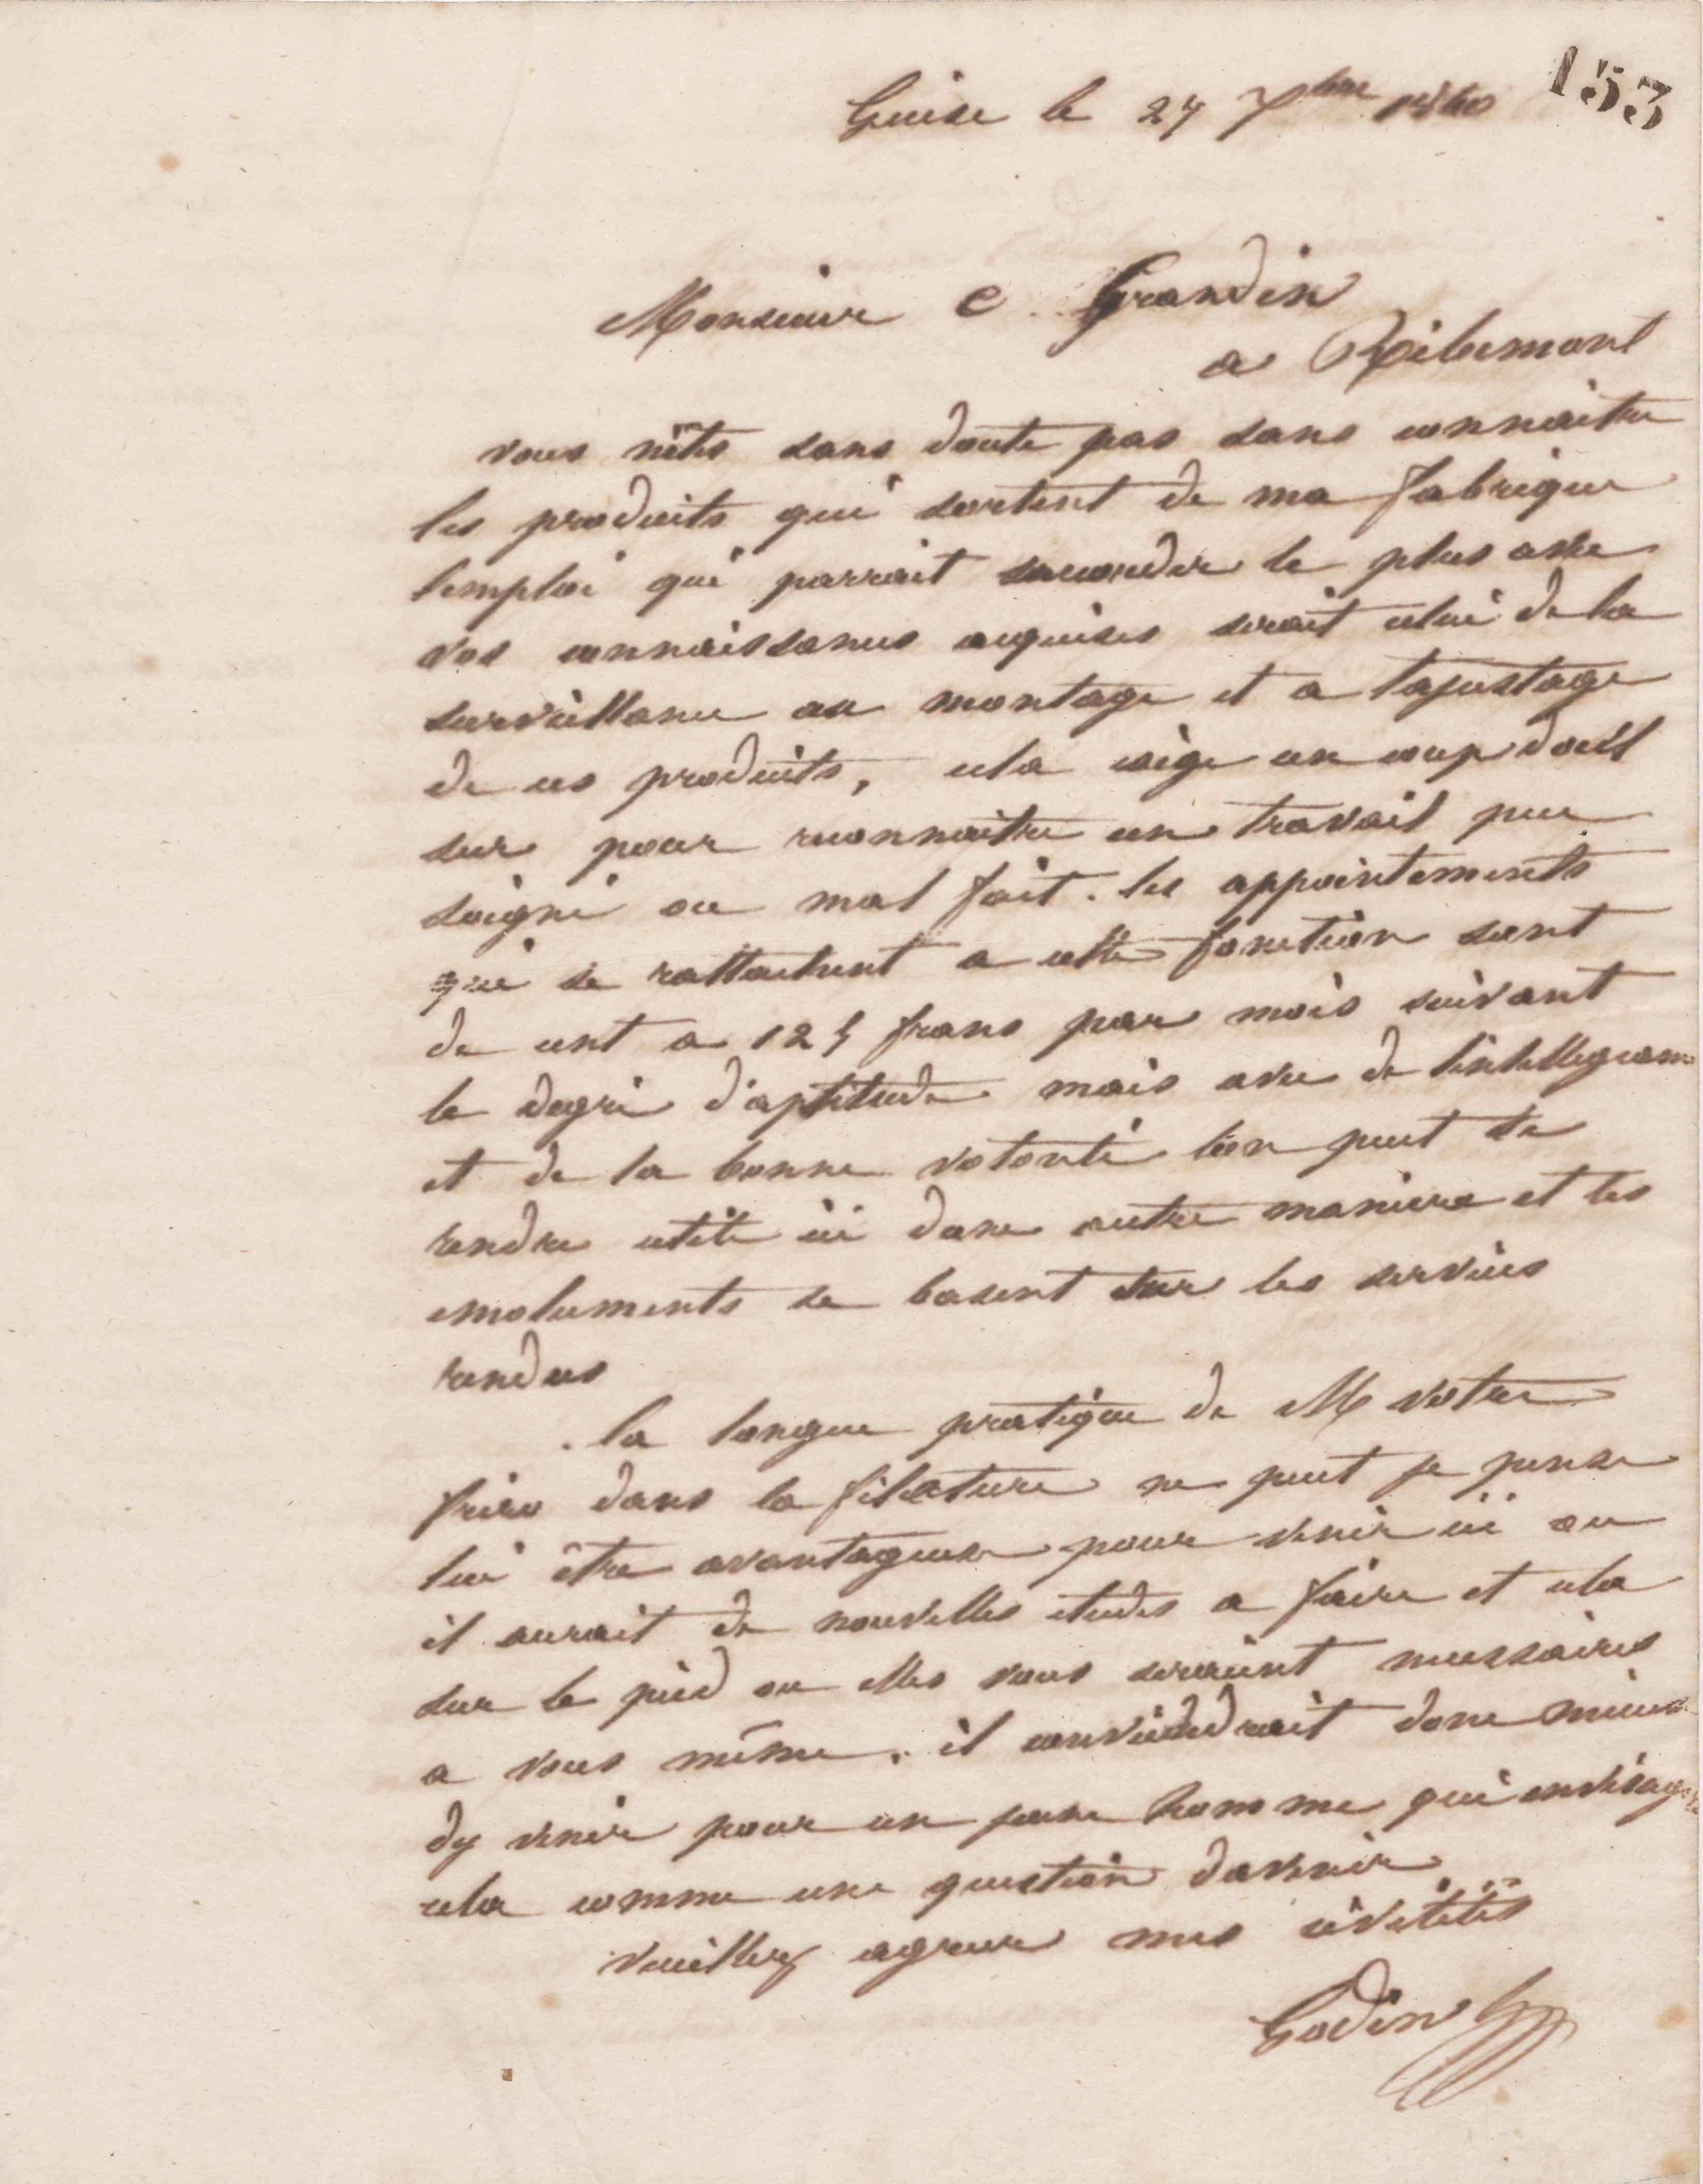 153
Guise le 27 7bre 1860
Monsieur C Grandin
a Ribemont
vous nêtes sans doute pas sans connaitre
les produits qui sortent de ma fabrique
lemploi qui parrait saccorder le plus avec
vos connaissances acquises serait celui de la
surveillance au montage et a lajustage
de ces produits, cela exige un coup doeil
sur pour reconnaitre un travail peu
soigné ou mal fait. les appointements
qui se rattachent a cette fonction sont
de cent a 125 francs par mois suivant
le degré d'aptitude mais avec de lintelligence
et de la bonne volonté lon peut se
rendre utile ici dune autre maniere et les
emoluments se basent sur les services
rendus
la longue pratique de M votre
frère dans la filature ne peut je pense
lui être avantageuse pour venir ici ou
il aurait de nouvelles etudes a faire et cela
sur le pied ou elles vous seraient necessaires
a vous même. il conviendrait donc mieux
dy venir pour un jeune homme qui envisage
cela comme une question davenir
veuillez agreer mes civilités
Godin